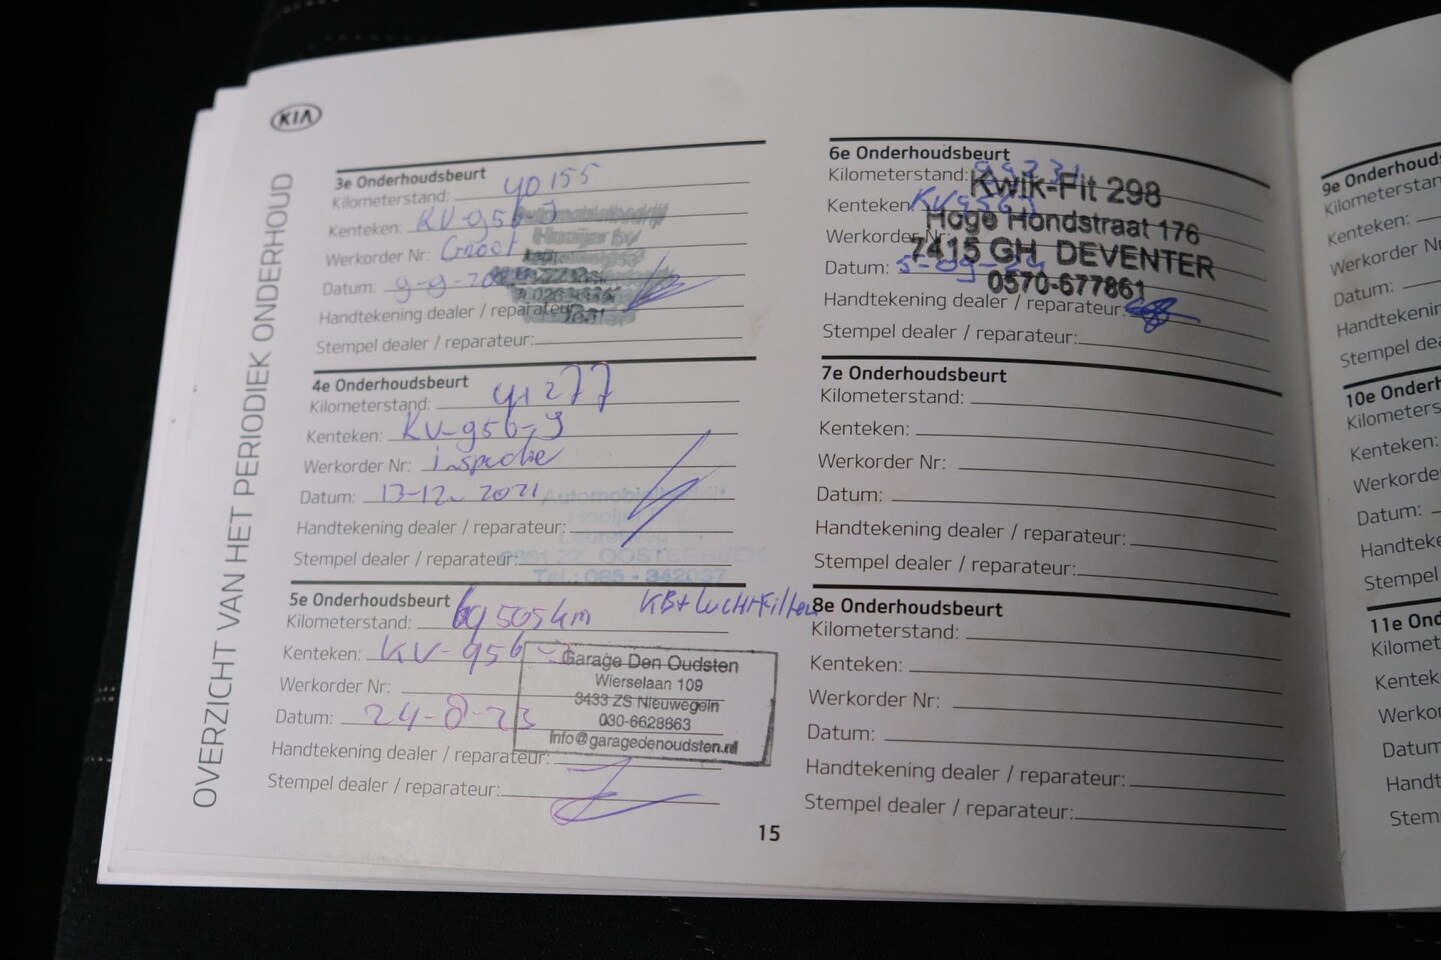 KIA
OVERZICHT VAN HET PERIODIEK ONDERHOUD
3e Onderhoudsbeurt
Kilometerstand: 40155
Kenteken: KV-956-J
Werkorder Nr: Groot
Datum: 9-9-20
Handtekening dealer / reparateur:
Stempel dealer / reparateur:
4e Onderhoudsbeurt
Kilometerstand: 41277
Kenteken: KV-956-J
Werkorder Nr: inspectie
Datum: 13-12-2021
Handtekening dealer / reparateur:
Stempel dealer / reparateur:
OOSTERBEEK
Tel.: 085 - 342037
5e Onderhoudsbeurt
Kilometerstand: 69505km KB+LUCHTFilter
Kenteken: KV-956-J
Werkorder Nr:
Datum: 24-8-23
Handtekening dealer / reparateur:
Stempel dealer / reparateur:
Garage Den Oudsten
Wierselaan 109
3433 ZS Nieuwegein
030-6628663
Info@garagedenoudsten.nl
6e Onderhoudsbeurt
Kilometerstand:
Kenteken: KV956J
Werkorder Nr:
Datum: 5-09-24
Handtekening dealer / reparateur:
Stempel dealer / reparateur:
Kwik-Fit 298
Hoge Hondstraat 176
7415 GH DEVENTER
0570-677861
7e Onderhoudsbeurt
Kilometerstand:
Kenteken:
Werkorder Nr:
Datum:
Handtekening dealer / reparateur:
Stempel dealer / reparateur:
8e Onderhoudsbeurt
Kilometerstand:
Kenteken:
Werkorder Nr:
Datum:
Handtekening dealer / reparateur:
Stempel dealer / reparateur:
15
9e Onderhouds
Kilometerstan
Kenteken:
Werkorder N
Datum:
Handtekenin
Stempel dea
10e Onderh
Kilometers
Kenteken:
Werkorder
Datum:
Handteke
Stempel
11e Ond
Kilomet
Kenteke
Werko
Datum
Handt
Stem